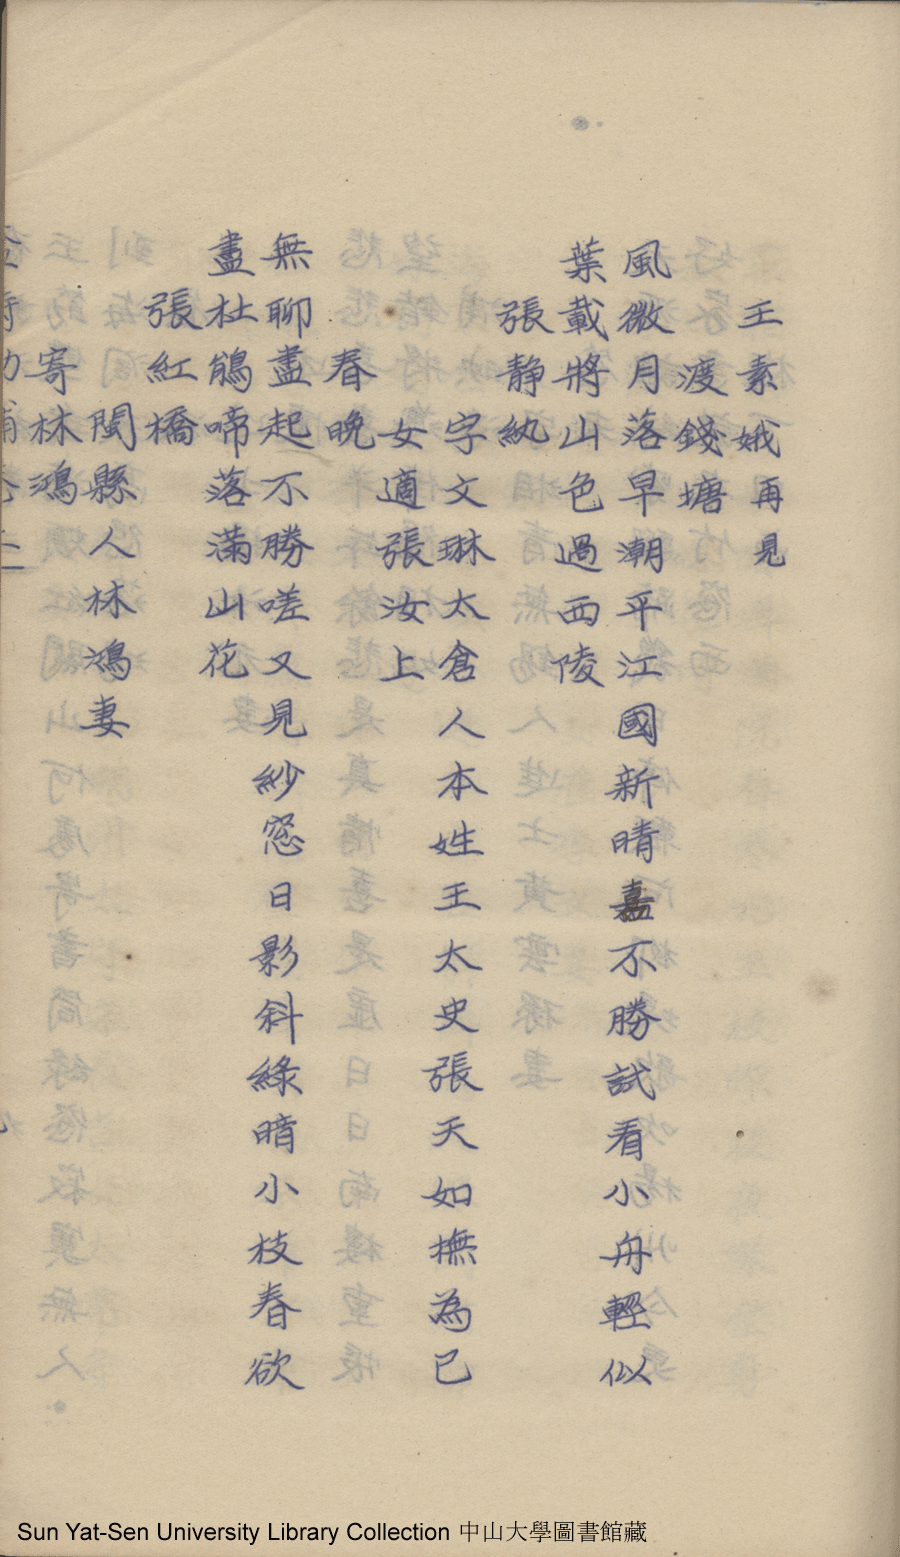 王素娥再見
渡錢塘
風微月落早潮平江國新晴嘉不勝試看小舟輕似
葉載將山色過西陵
張靜紈
字文琳太倉人本姓王太史張天如撫為已
女適張汝上
春晚
無聊盡起不勝嗟又見紗窓日影斜綠暗小枝春欲
盡杜鵑啼落滿山花
張紅橋
閩縣人林鴻妻
寄林鴻
Sun Yat-Sen University Library Collection 中山大學圖書館藏